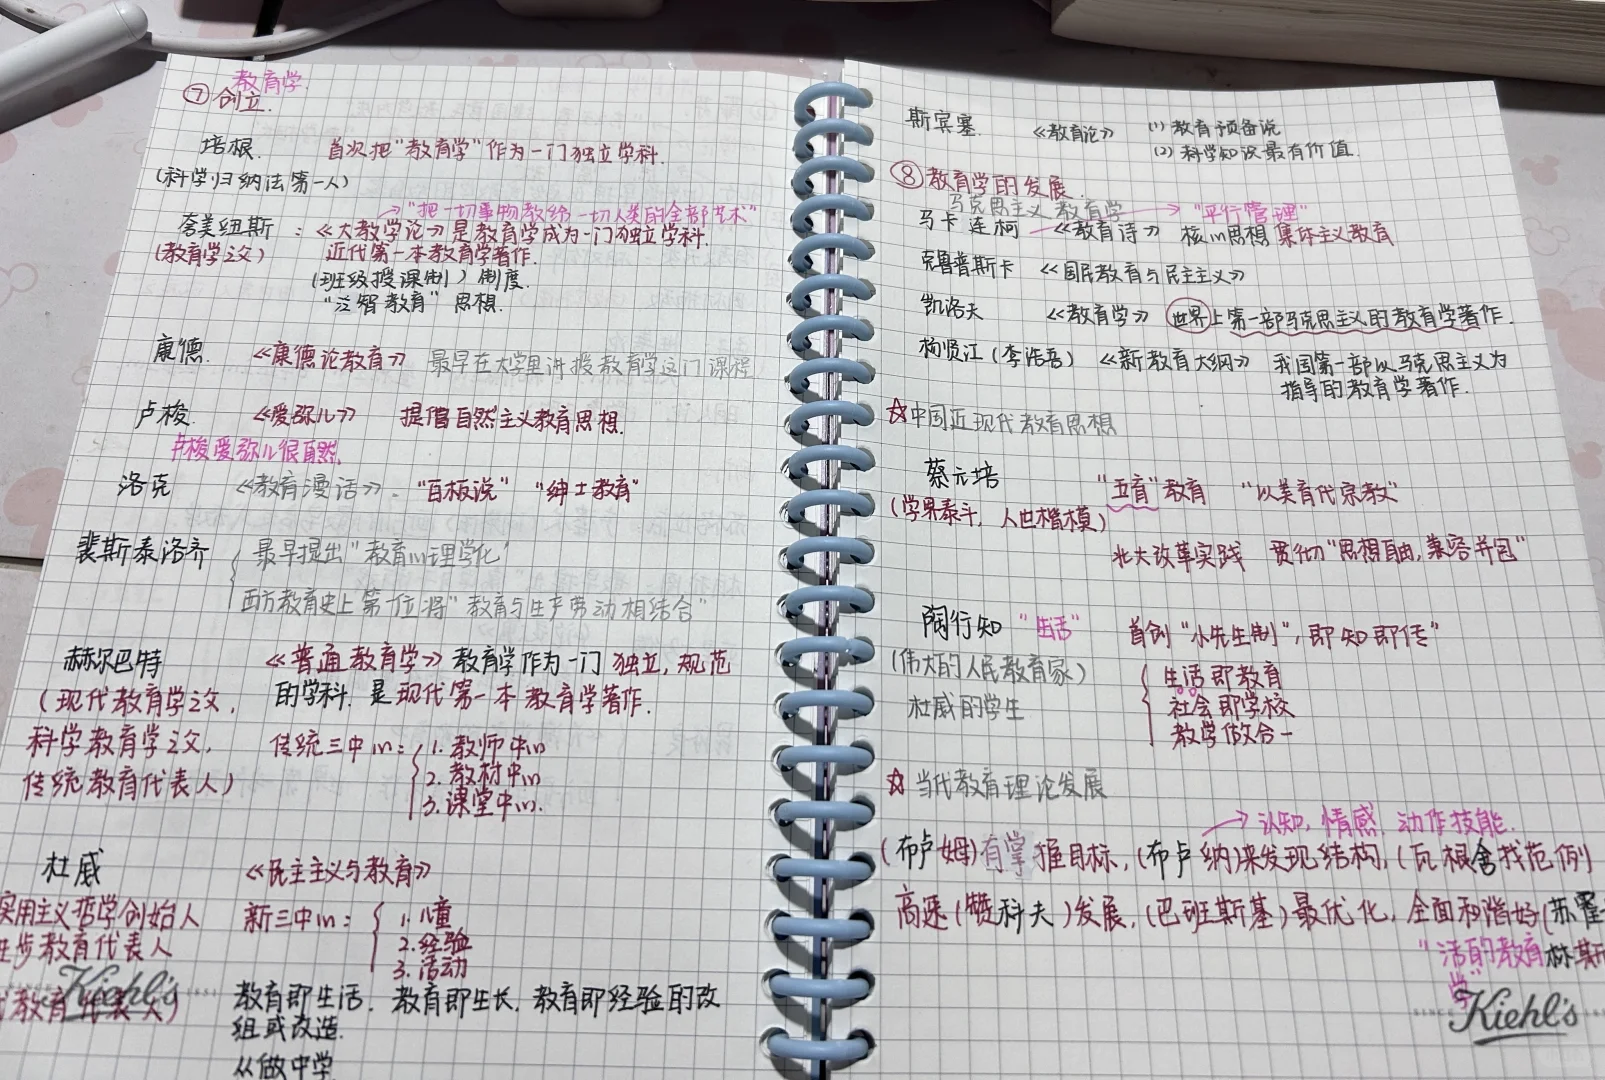 教育学
⑦ 创立.
培根. 首次把"教育学"作为一门独立学科.
(科学归纳法第一人)
→"把一切事物教给一切人类的全部艺术"
夸美纽斯 : 《大教学论》是教育学成为一门独立学科.
(教育学之父) 近代第一本教育学著作.
(班级授课制) 制度.
"泛智教育" 思想.
康德. 《康德论教育》 最早在大学里讲授教育学这门课程
卢梭. 《爱弥儿》 提倡自然主义教育思想.
卢梭爱弥儿很自然.
洛克 《教育漫话》. "白板说" "绅士教育"
裴斯泰洛齐 最早提出"教育心理学化"
西方教育史上第一位将"教育与生产劳动相结合"
赫尔巴特 《普通教育学》教育学作为一门独立,规范
(现代教育学之父, 的学科. 是现代第一本教育学著作.
科学教育学之父, 传统三中心: 1. 教师中心
传统教育代表人) 2. 教材中心
3. 课堂中心.
杜威 《民主主义与教育》
实用主义哲学创始人 新三中心: 1. 儿童
进步教育代表人 2. 经验
3. 活动
代教育代表人)
Kiehl's
教育即生活. 教育即生长. 教育即经验的改
组或改造.
从做中学
斯宾塞. 《教育论》 (1) 教育预备说
(2) 科学知识最有价值.
⑧ 教育学的发展.
马克思主义教育学 → "平行管理"
马卡连柯 《教育诗》 核心思想 集体主义教育
克鲁普斯卡 《国民教育与民主主义》
凯洛夫 《教育学》 世界上第一部马克思主义的教育学著作.
杨贤江(李浩吾) 《新教育大纲》 我国第一部以马克思主义为
指导的教育学著作.
☆中国近现代教育思想
蔡元培 "五育"教育 "以美育代宗教"
(学界泰斗, 人世楷模)
北大改革实践 贯彻"思想自由,兼容并包"
陶行知 "生活" 首创"小先生制", 即知即传"
(伟大的人民教育家) 生活即教育
杜威的学生 社会即学校
教学做合一
☆ 当代教育理论发展
→ 认知, 情感, 动作技能.
(布卢姆)有掌握目标, (布卢纳)来发现结构, (瓦根舍找范例)
高速(赞科夫)发展, (巴班斯基)最优化, 全面和谐好(苏霍
"活的教育 林斯
学"
SINCE Kiehl's